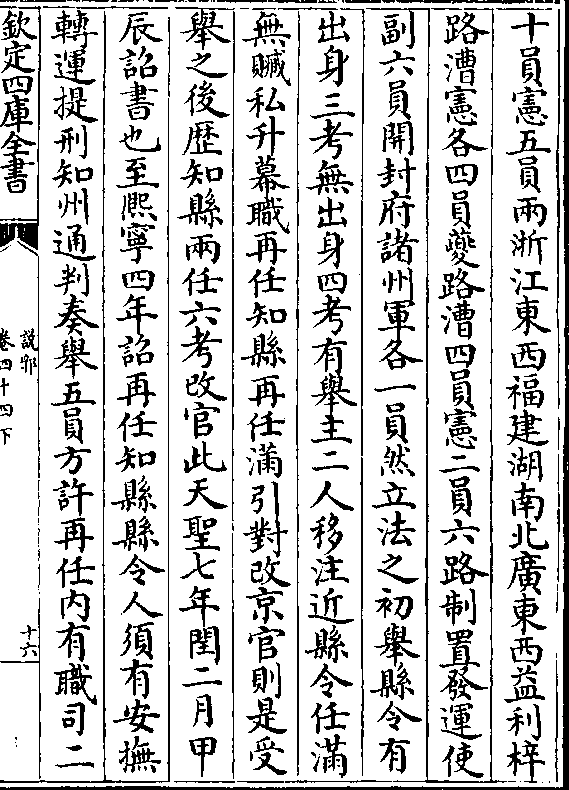 十員憲五員兩浙江東西福建湖南北廣東西益利梓
路漕憲各四員夔路漕四員憲二員六路制置發運使
副六員開封府諸州軍各一員然立法之初舉縣令有
出身三考無出身四考有舉主二人移注近縣令任滿
無贓私升幕職再任知縣再任滿引對改京官則是受
舉之後歴知縣兩任六考改官此天聖七年閏二月甲
辰詔書也至熙寧四年詔再任知縣縣令人須有安撫
轉運提刑知州通判奏舉五員方許再任内有職司二
欽定四庫全書
說郛
卷四十四下
十六